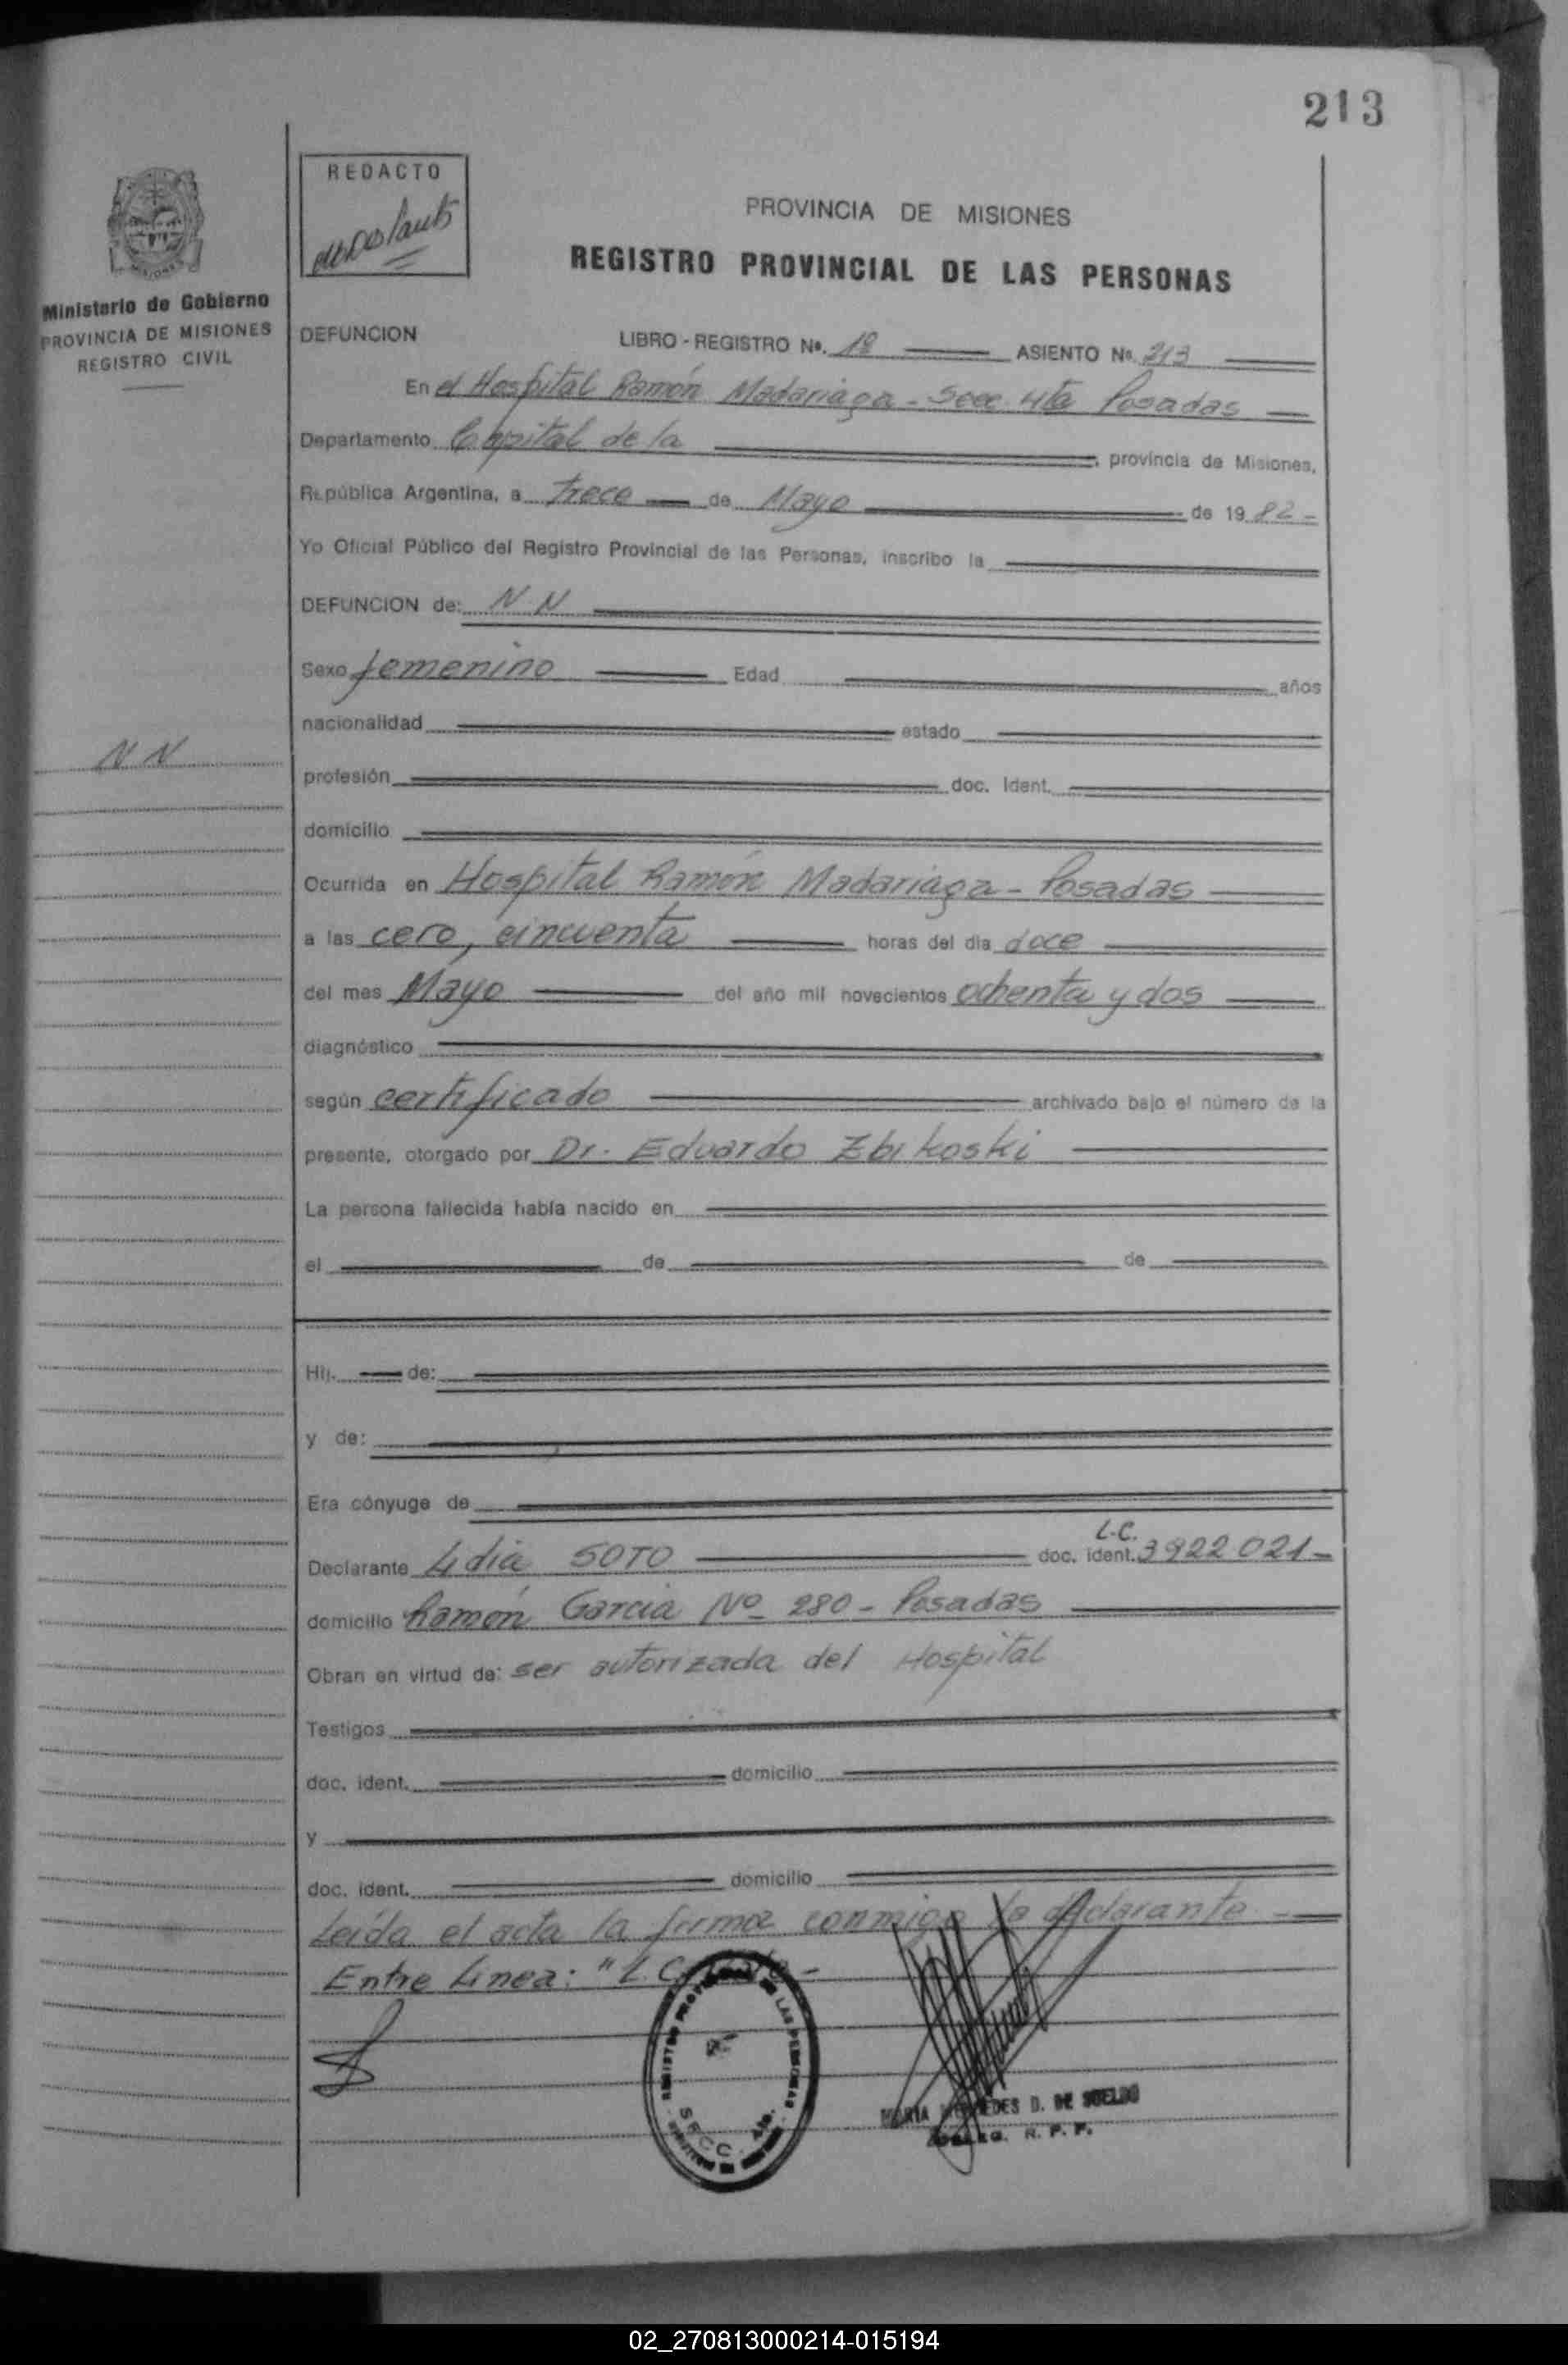 213
REDACTO
PROVINCIA DE MISIONES
REGISTRO PROVINCIAL DE LAS PERSONAS
Ministerio de Gobierno
PROVINCIA DE MISIONES
REGISTRO CIVIL
DEFUNCION LIBRO - REGISTRO Nº. 18 ASIENTO Nº. 213
En el Hospital Ramón Madariaga - Secc 4ta Posadas
Departamento Capital de la , provincia de Misiones,
República Argentina, a trece de Mayo de 1982 -
Yo Oficial Público del Registro Provincial de las Personas, inscribo la
DEFUNCION de: N N
Sexo femenino Edad años
nacionalidad estado
N N
profesión doc. Ident.
domicilio
Ocurrida en Hospital Ramón Madariaga - Posadas
a las cero, cincuenta horas del día doce
del mes Mayo del año mil novecientos ochenta y dos
diagnóstico
según certificado archivado bajo el número de la
presente, otorgado por Dr. Eduardo Zbikoski
La persona fallecida había nacido en
el de de
Hij. de:
y de:
Era cónyuge de
L.C.
Declarante Lidia SOTO doc. ident. 3922021 -
domicilio Ramón Garcia Nº 280 - Posadas
Obran en virtud de: ser autorizada del Hospital
Testigos
doc. ident. domicilio
y
doc. ident. domicilio
Leída el acta la firma conmigo la declarante -
Entre Linea: "L.C.
REGISTRO DE LAS PERSONAS
MARIA D. DE SUELDO
R. P. P.
02_270813000214-015194